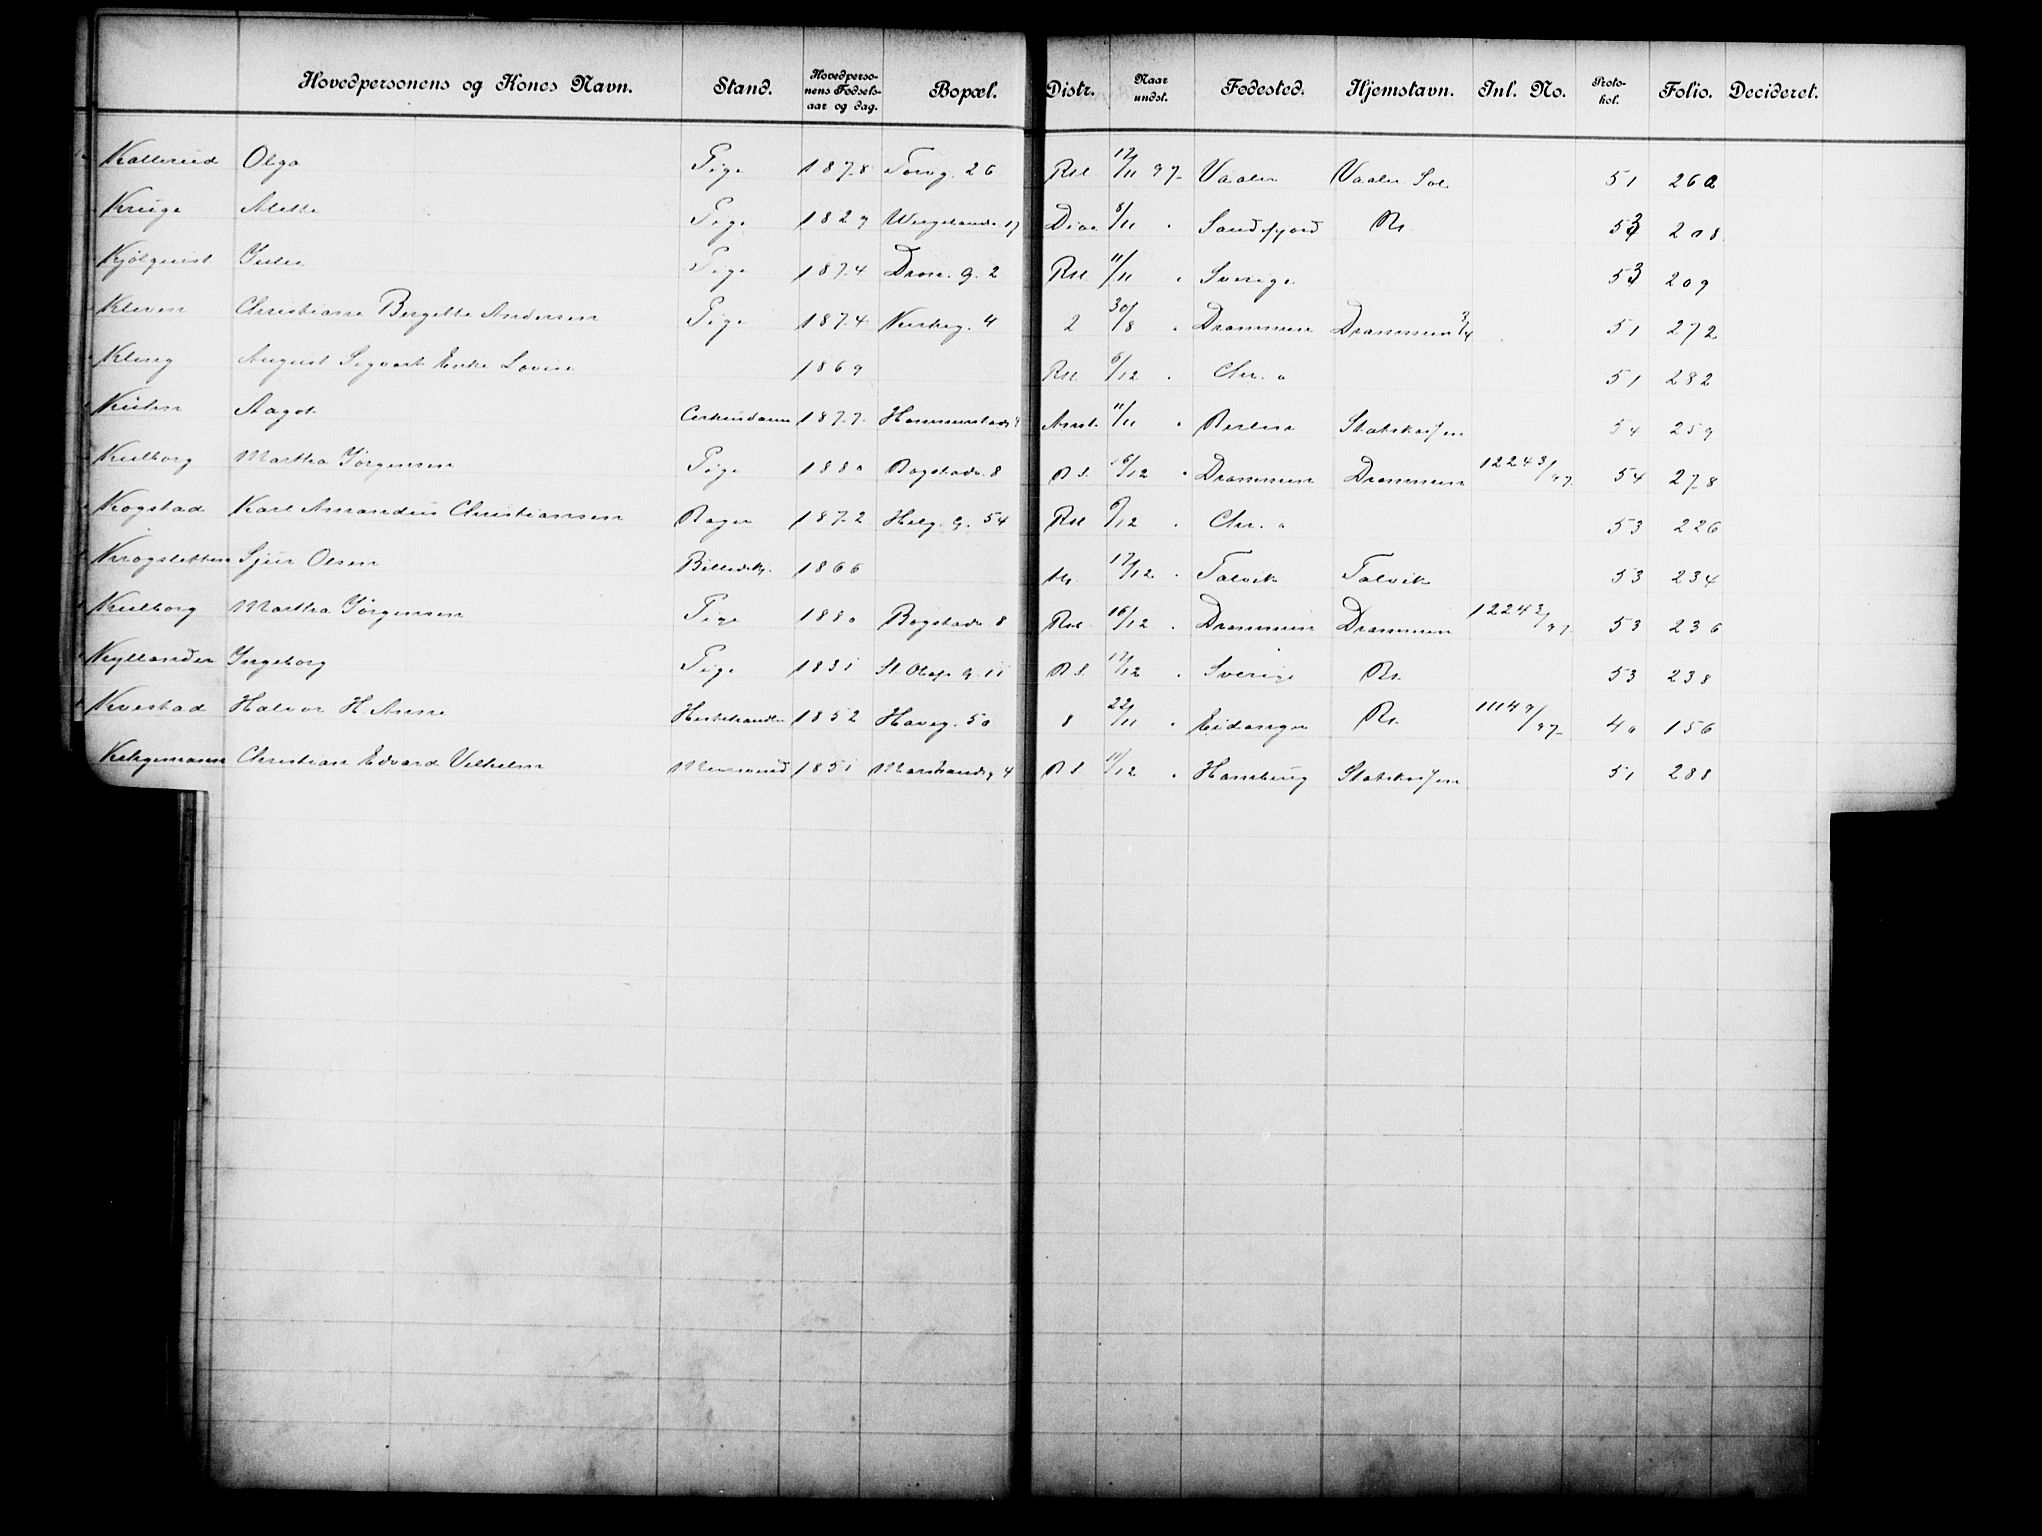 Hovedpersonens og Kones Navn. Stand. Hovedpersonens Fødselsaar og dag. Bopæl. Distr. Naar undst. Fødested. Hjemstavn. Inl. No. Protokol. Folio. Decideret.
Kollerud Olga Pige 1878 Torvg. 26 Rst. 17/11 97 Vaaler Vaaler Sol. 51 260
Kruge Alette Pige 1829 17 8/11 " Sandefjord 53 208
Kjølquist Julie Pige 1874 Dron. g. 2 Rst. 11/11 " Sverige 53 209
Kleven Christiane Bergitte Andersen Pige 1874 4 2 30/8 " Drammen Drammen 51 272
Kling August Sigvart Lovise 1869 Rst. 6/12 " Chr. a 51 282
Kühn Aagot 1877 Hammerstads 4 11/11 " Berlin Statskassen 54 259
Kulborg Martha Jørgensen Pige 1880 Bogstadv. 8 R S. 16/12 " Drammen Drammen 12243/97 54 278
Kogstad Karl Amandus Christiansen Bager 1872 Helg. g. 54 Rst. 6/12 " Chr. a 53 226
Krogsletten Sjur Olsen Billedsk. 1866 17/12 " Talvik Talvik 53 234
Kulborg Martha Jørgensen Pige 1880 Bogstadv. 8 Rst. 16/12 " Drammen Drammen 12243/97 53 236
Kyllander Ingeborg Pige 1831 St. Olafs g. 11 R S. 17/12 " Sverige 53 238
Kvestad Halvor H. Anne 1852 Haveg. 50 8 22/11 " Eidanger 11149/97 40 156
Christian Edvard Vilhelm 1851 Markveig 4 R S. 11/12 " Hamburg Statskassen 51 288